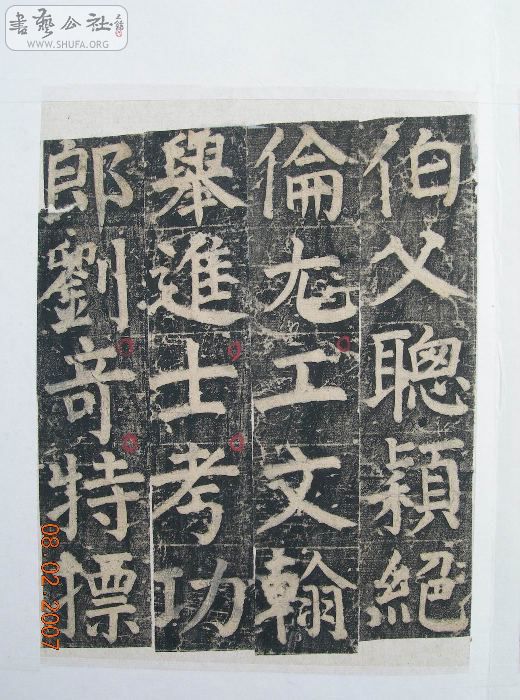 書藝公社
WWW.SHUFA.ORG
伯父聰穎絕
倫尤工文翰
舉進士考功
郎劉奇特摽
08.02.2007